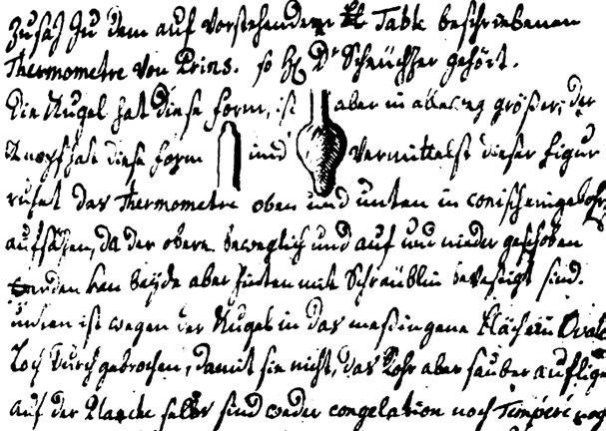 Zusaz zu dem auf vorstehender Tabl beschriebenen
Thermometre von Prins. so H. Dr Scheüchzer gehört.
Die Kugel hat diese form, ist aber in allweg größer, der
Knopf hat diese form und vermittelst dieser figur
ruhet das Thermometre oben und unten in conisch
aufsäzen, da der obere beweglich und auf und nieder geschoben
werden kan beÿde aber hinten mit Schräublin bevestigt sind.
unten ist wegen der Kugel in das meßingene Oval
Loch durchgebrochen, damit sie nicht, das Rohr aber sauber auflige
auf der Blache selbs sind weder congelation noch Temperé